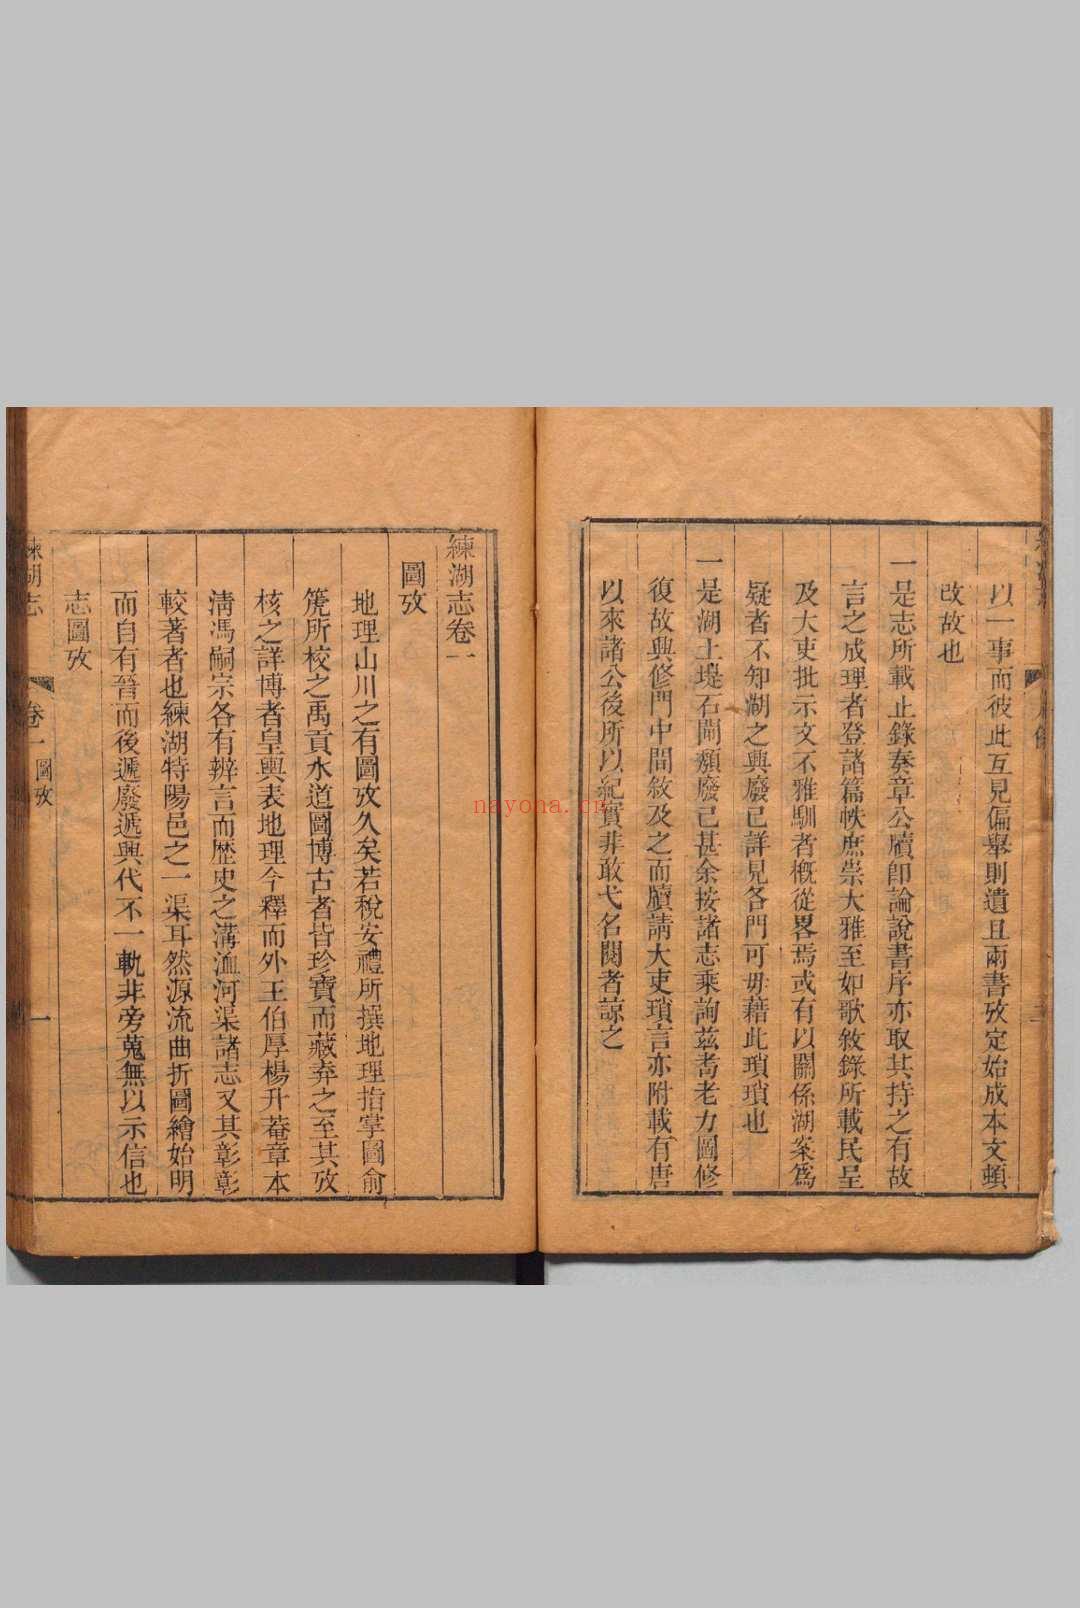 以一事而彼此互見偏舉則遺且兩書攷定始成本文頓
改故也
一是志所載止錄奏章公牘卽論說書序亦取其持之有故
言之成理者登諸篇帙庶崇大雅至如歌敘錄所載民呈
及大吏批示文不雅馴者槪從畧焉或有以關係湖案爲
疑者不知湖之興廢已詳見各門可毋藉此瑣瑣也
一是湖土堤石閘頽廢已甚余按諸志乘詢茲耆老力圖修
復故興修門中間敘及之而牘請大吏瑣言亦附載有唐
以來諸公後所以紀實非敢弋名閱者諒之
練湖志卷一
圖攷
地理山川之有圖攷久矣若稅安禮所撰地理指掌圖俞
箎所校之禹貢水道圖博古者皆珍寶而藏弆之至其攷
核之詳博者皇輿表地理今釋而外王伯厚楊升菴章本
淸馮嗣宗各有辨言而歷史之溝洫河渠諸志又其彰彰
較著者也練湖特陽邑之一渠耳然源流曲折圖繪始明
而自有晉而後遞廢遞興代不一軌非旁蒐無以示信也
志圖攷
練湖志
卷一 圖攷
一
nayona.cn